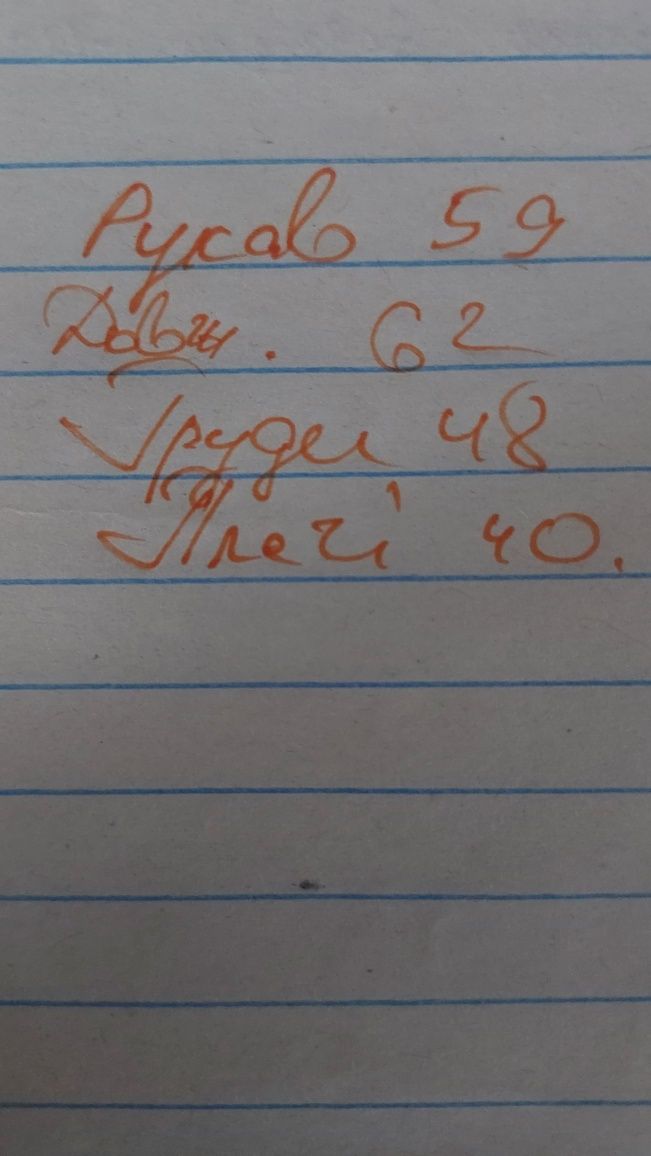 Рукав 59
Довж. 62
Груди 48
Плечі 40.